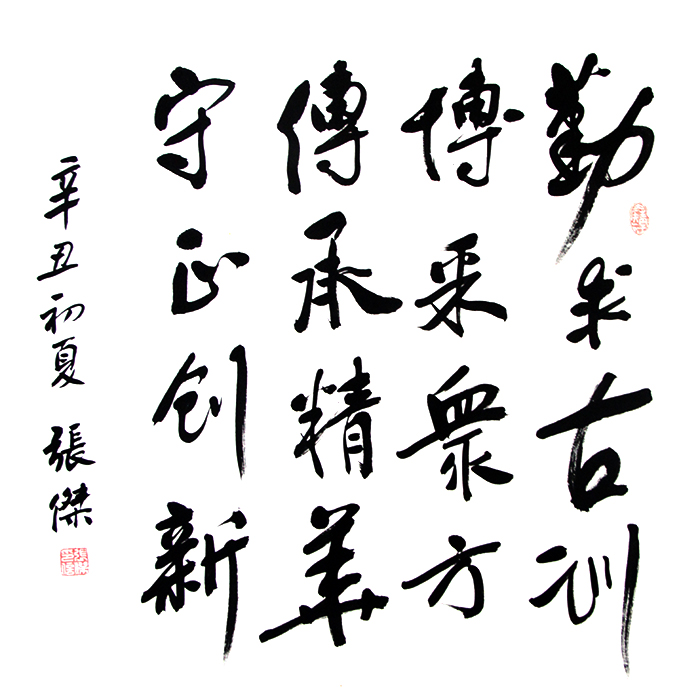 勤求古训
博采衆方
傳承精華
守正创新
辛丑初夏 張傑